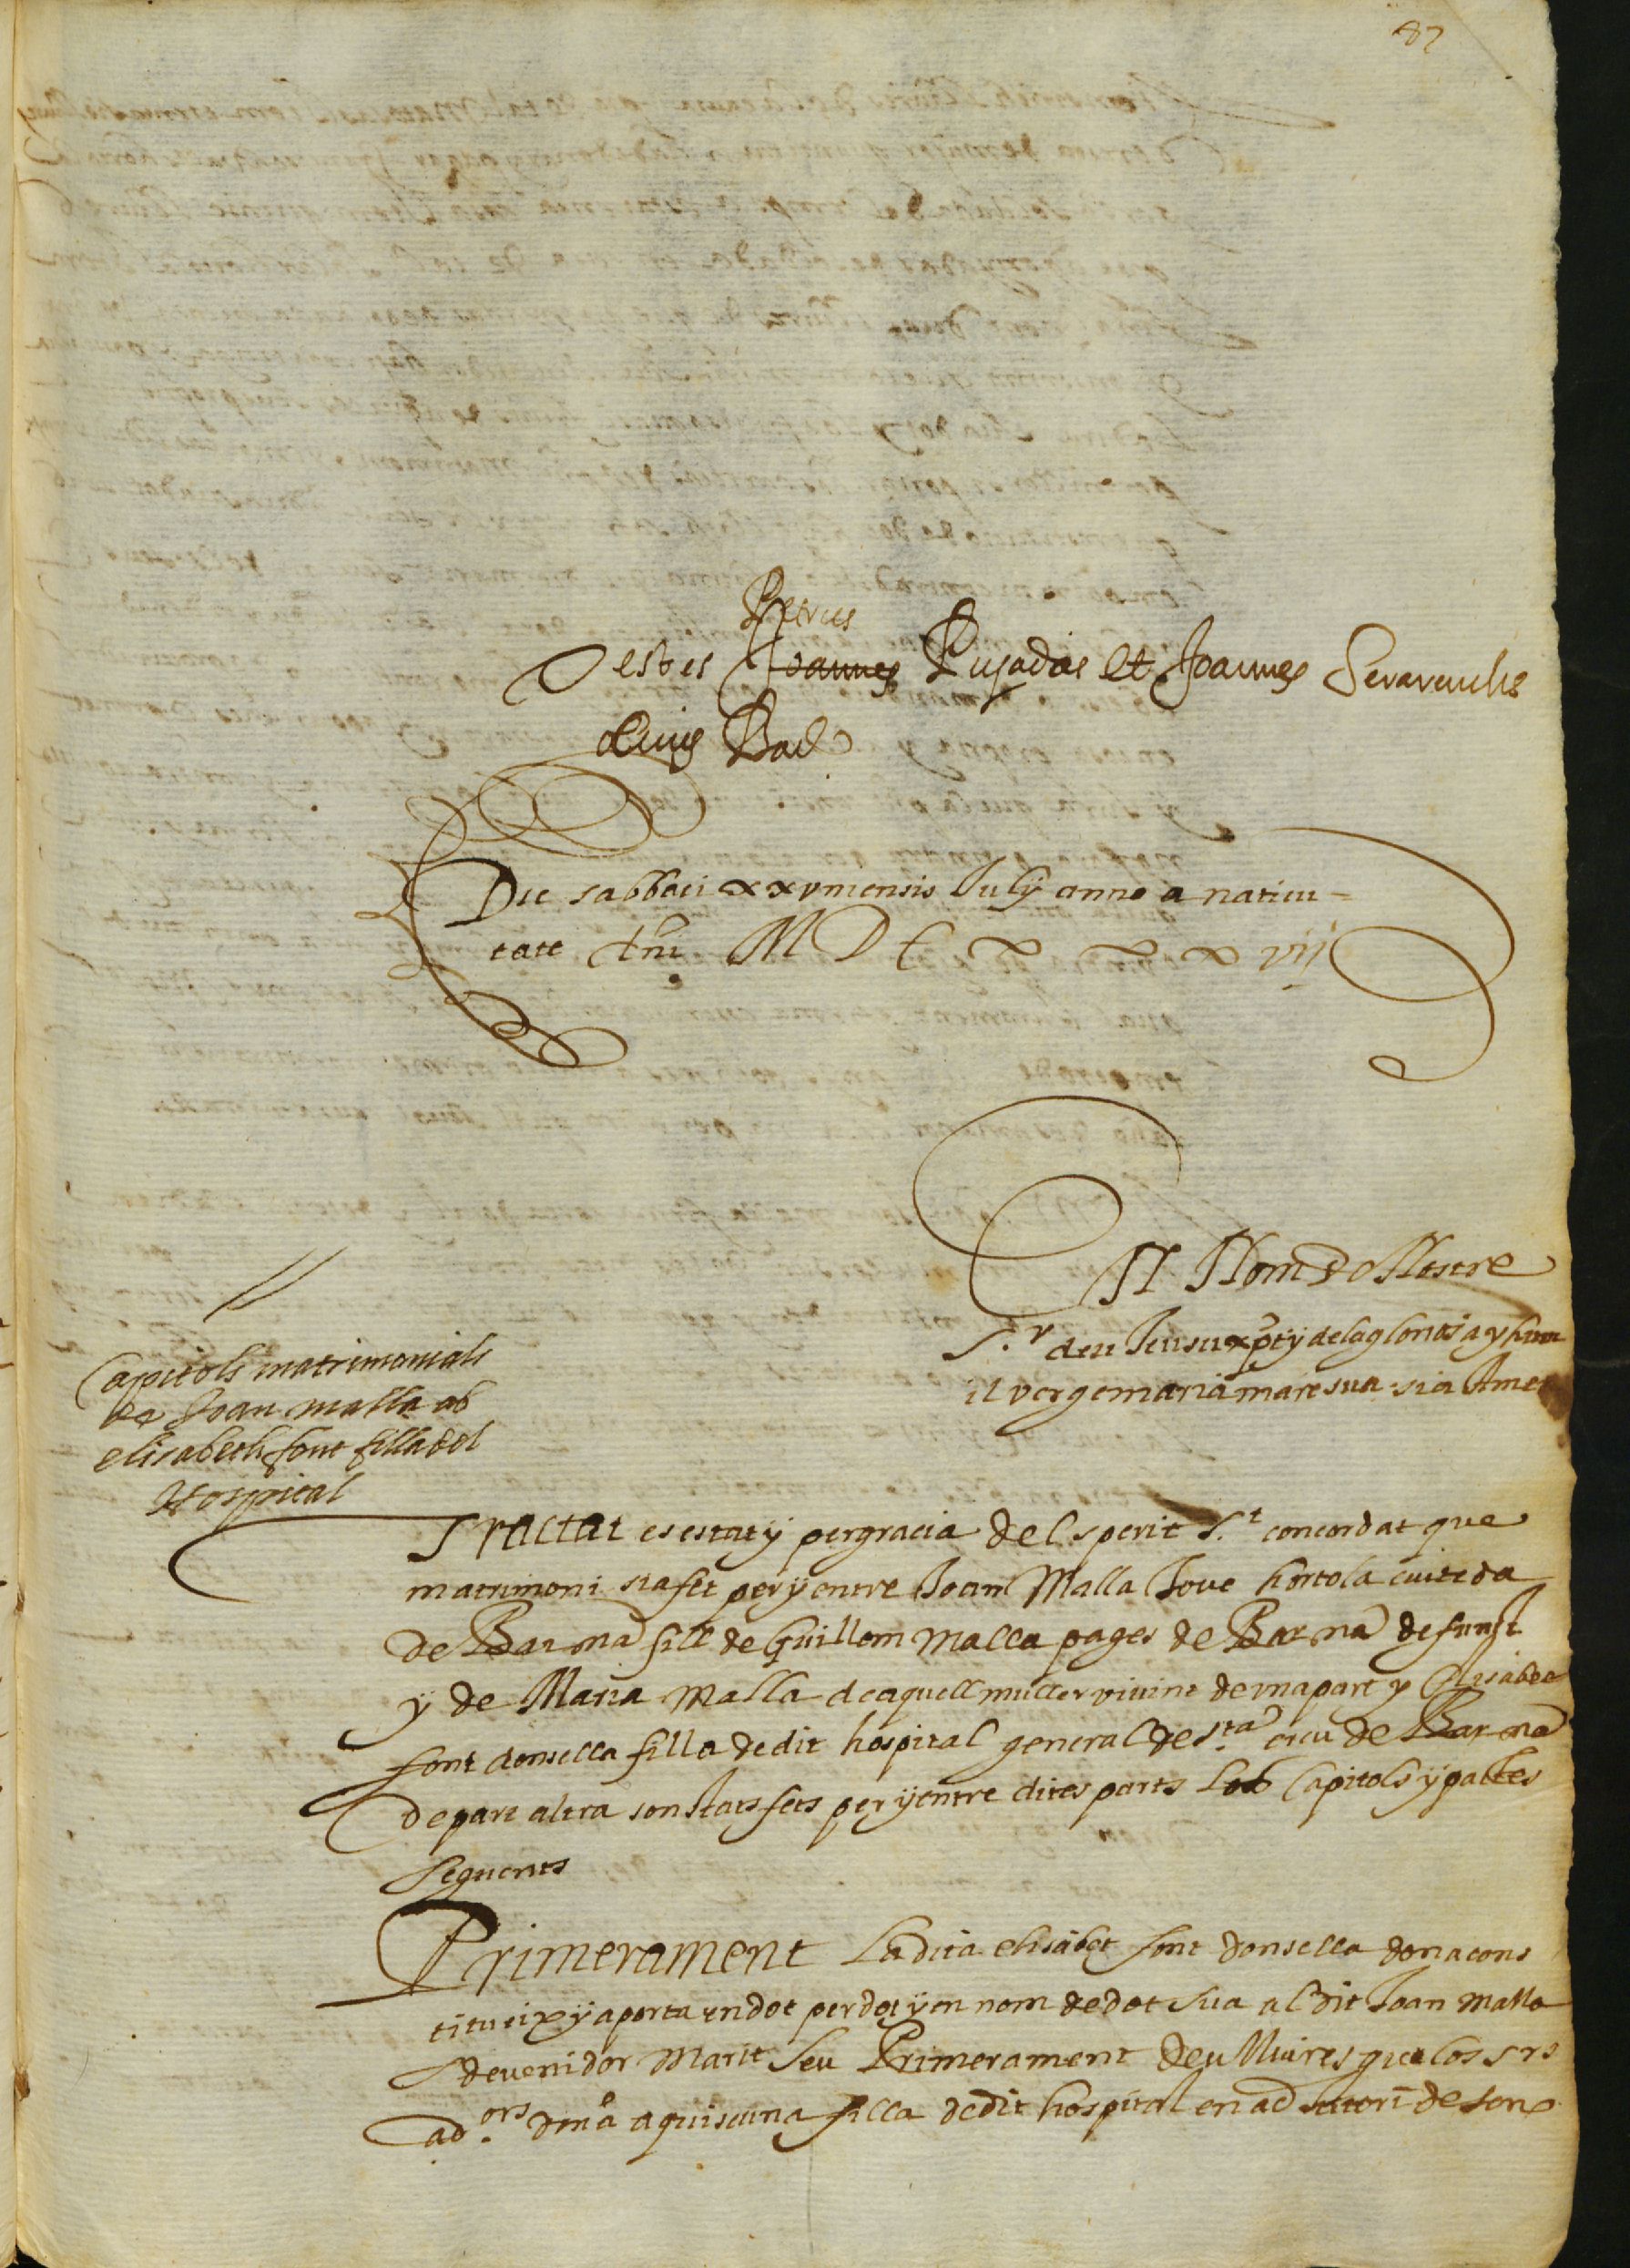 87
Petrus
Testes Joannes Pujadas et Joannes
Cives Bar
Die sabbati xxv mensis July anno a nativi=
tate dni M D C X X X vij
EN Nom de Nostre
S.r deu Jesu xpt y de la gloriosa y humi
il verge maria mare sua sia Amen
Capitols matrimonials
de Joan malla ab
elisabeth font filla del
Hospital
Tractat es estat y per gracia del sperit S.t concordat que
matrimoni sia fet per y entre Joan Malla Jove hortola ciuteda
de Barna fill de Guillem Malla pages de Barna defunct
y de Maria Malla de aquell muller vivint de una part y Elisabet
font donsella filla de dit hospital general de S.ta creu de Barna
de part altra son stats fets per y entre dites parts los Capitols y pactes
seguents
Primerament La dita elisabet font donsella dona cons
titueix y aporta en dot per dot y en nom de dot sua al dit Joan Malla
devenidor Marit seu Primerament deu lliures que los srs
ad.ors dona a quiscuna filla de dit hospital en ad de son